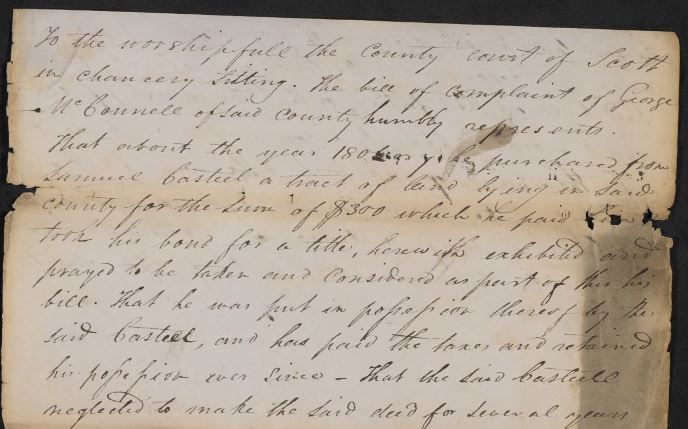 To the worshipfull the County court of Scott
in chancery sitting. The bill of complaint of George
McConnell of said County humbly represents.
That about the year 180 he purchased from
Samuel Casteel a tract of land lying in said
county for the sum of $300 which he paid
took his bond for a title, herewith exhibited and
prayed to be taken and Considered as part of this his
bill. That he was put in possession thereof by the
said Casteel, and has paid the taxes and retained
his possession ever since – That the said Casteel
neglected to make the said deed for several years